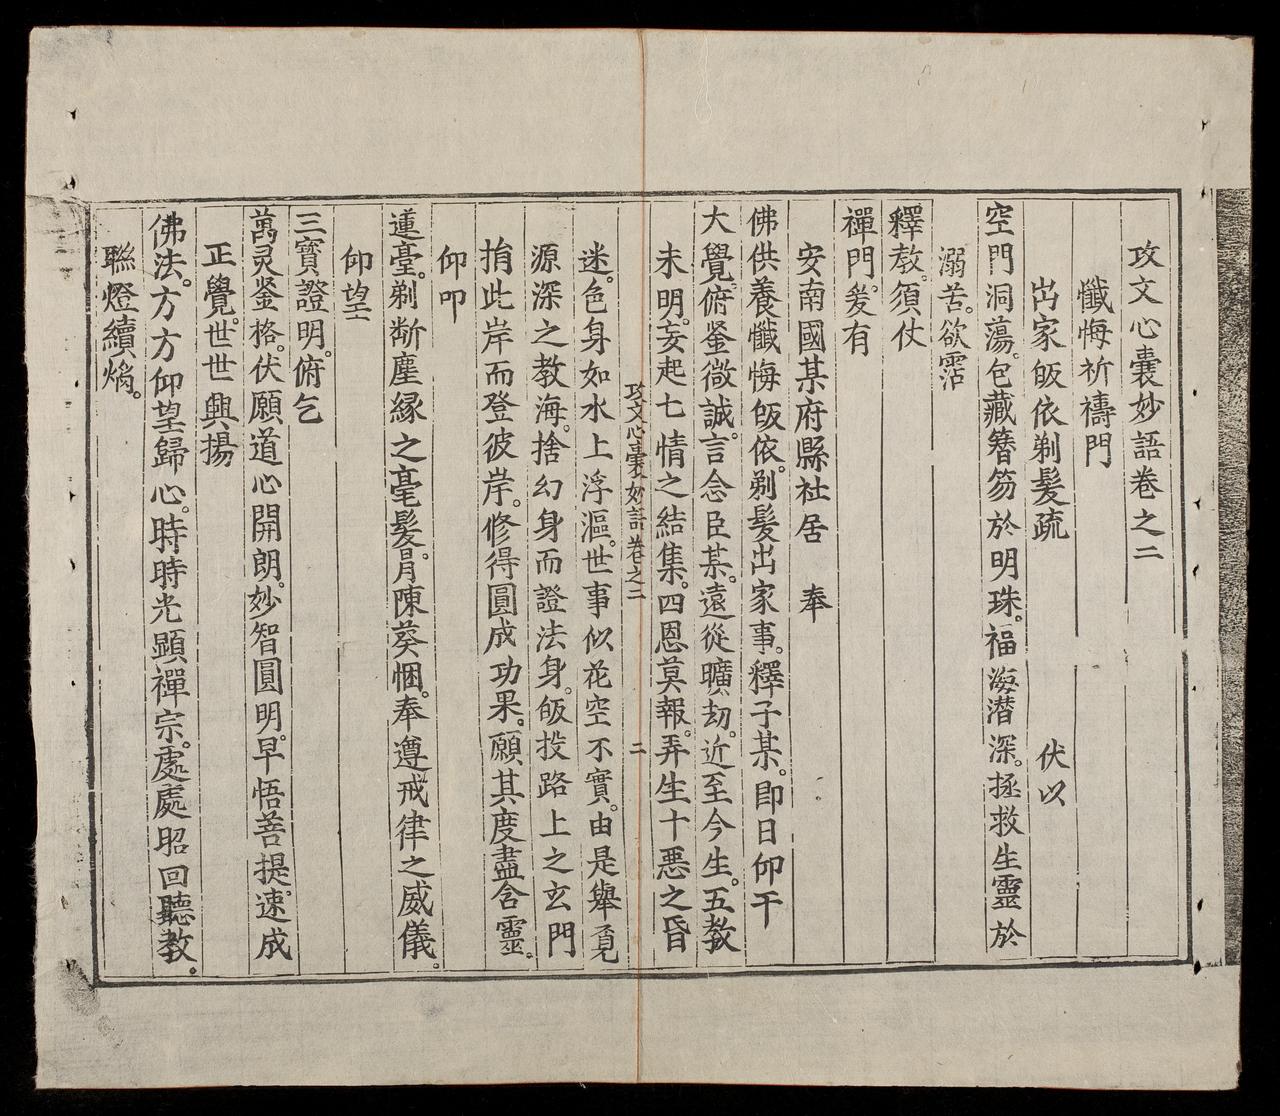 攻文心囊妙語卷之二
懺悔祈禱門
出家皈依剃髮疏 伏以
空門洞蕩。包藏簪笏於明珠。福海潜深。拯救生靈於
溺苦。欲霑
釋教。須仗
禪門。爰有
安南國某府縣社居 奉
佛供養懺悔皈依。剃髮出家事。釋子某。即日仰干
大覺。俯鉴微誠。言念臣某。遠從曠劫。近至今生。五教
未明。妄起七情之結集。四恩莫報。弄生十悪之昏
攻文心囊妙語卷之二 二
迷。色身如水上浮漚。世事似花空不實。由是舉覔
源深之教海。捨幻身而證法身。皈投路上之玄門
捐此岸而登彼岸。修得圓成功果。願其度盡含靈。
仰叩
蓮臺。剃斷塵縁之毫髮。肙陳葵悃。奉遵戒律之威儀。
仰望
三寳證明。俯乞
萬灵鉴格。伏願道心開朗。妙智圓明。早悟菩提。速成
正覺。世世興揚
佛法。方方仰望歸心。時時光顕禪宗。處處昭回聽教。
聮燈續焰。